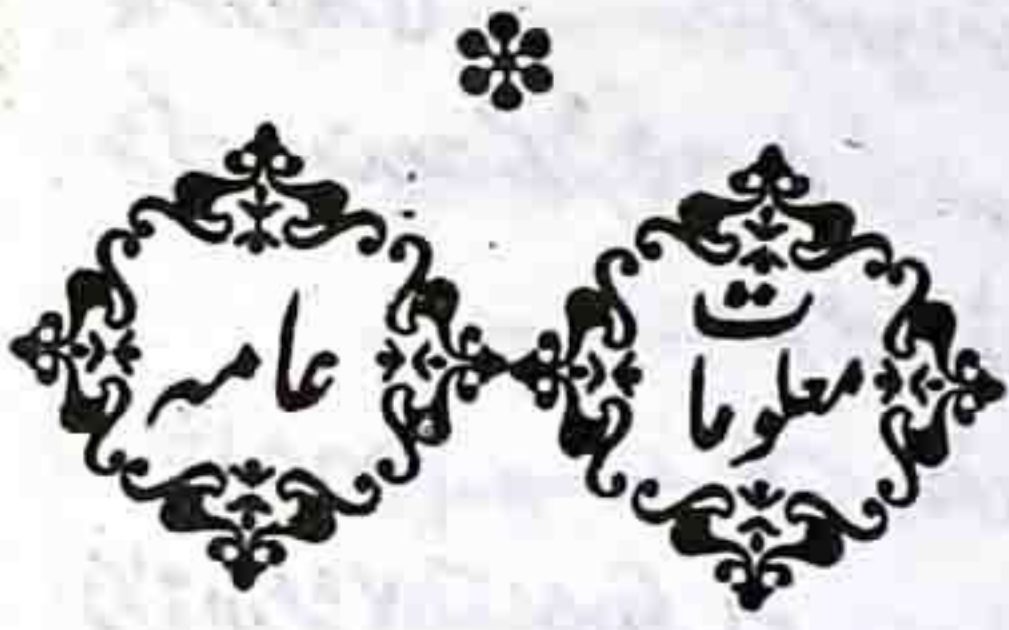 معلومات
عامہ